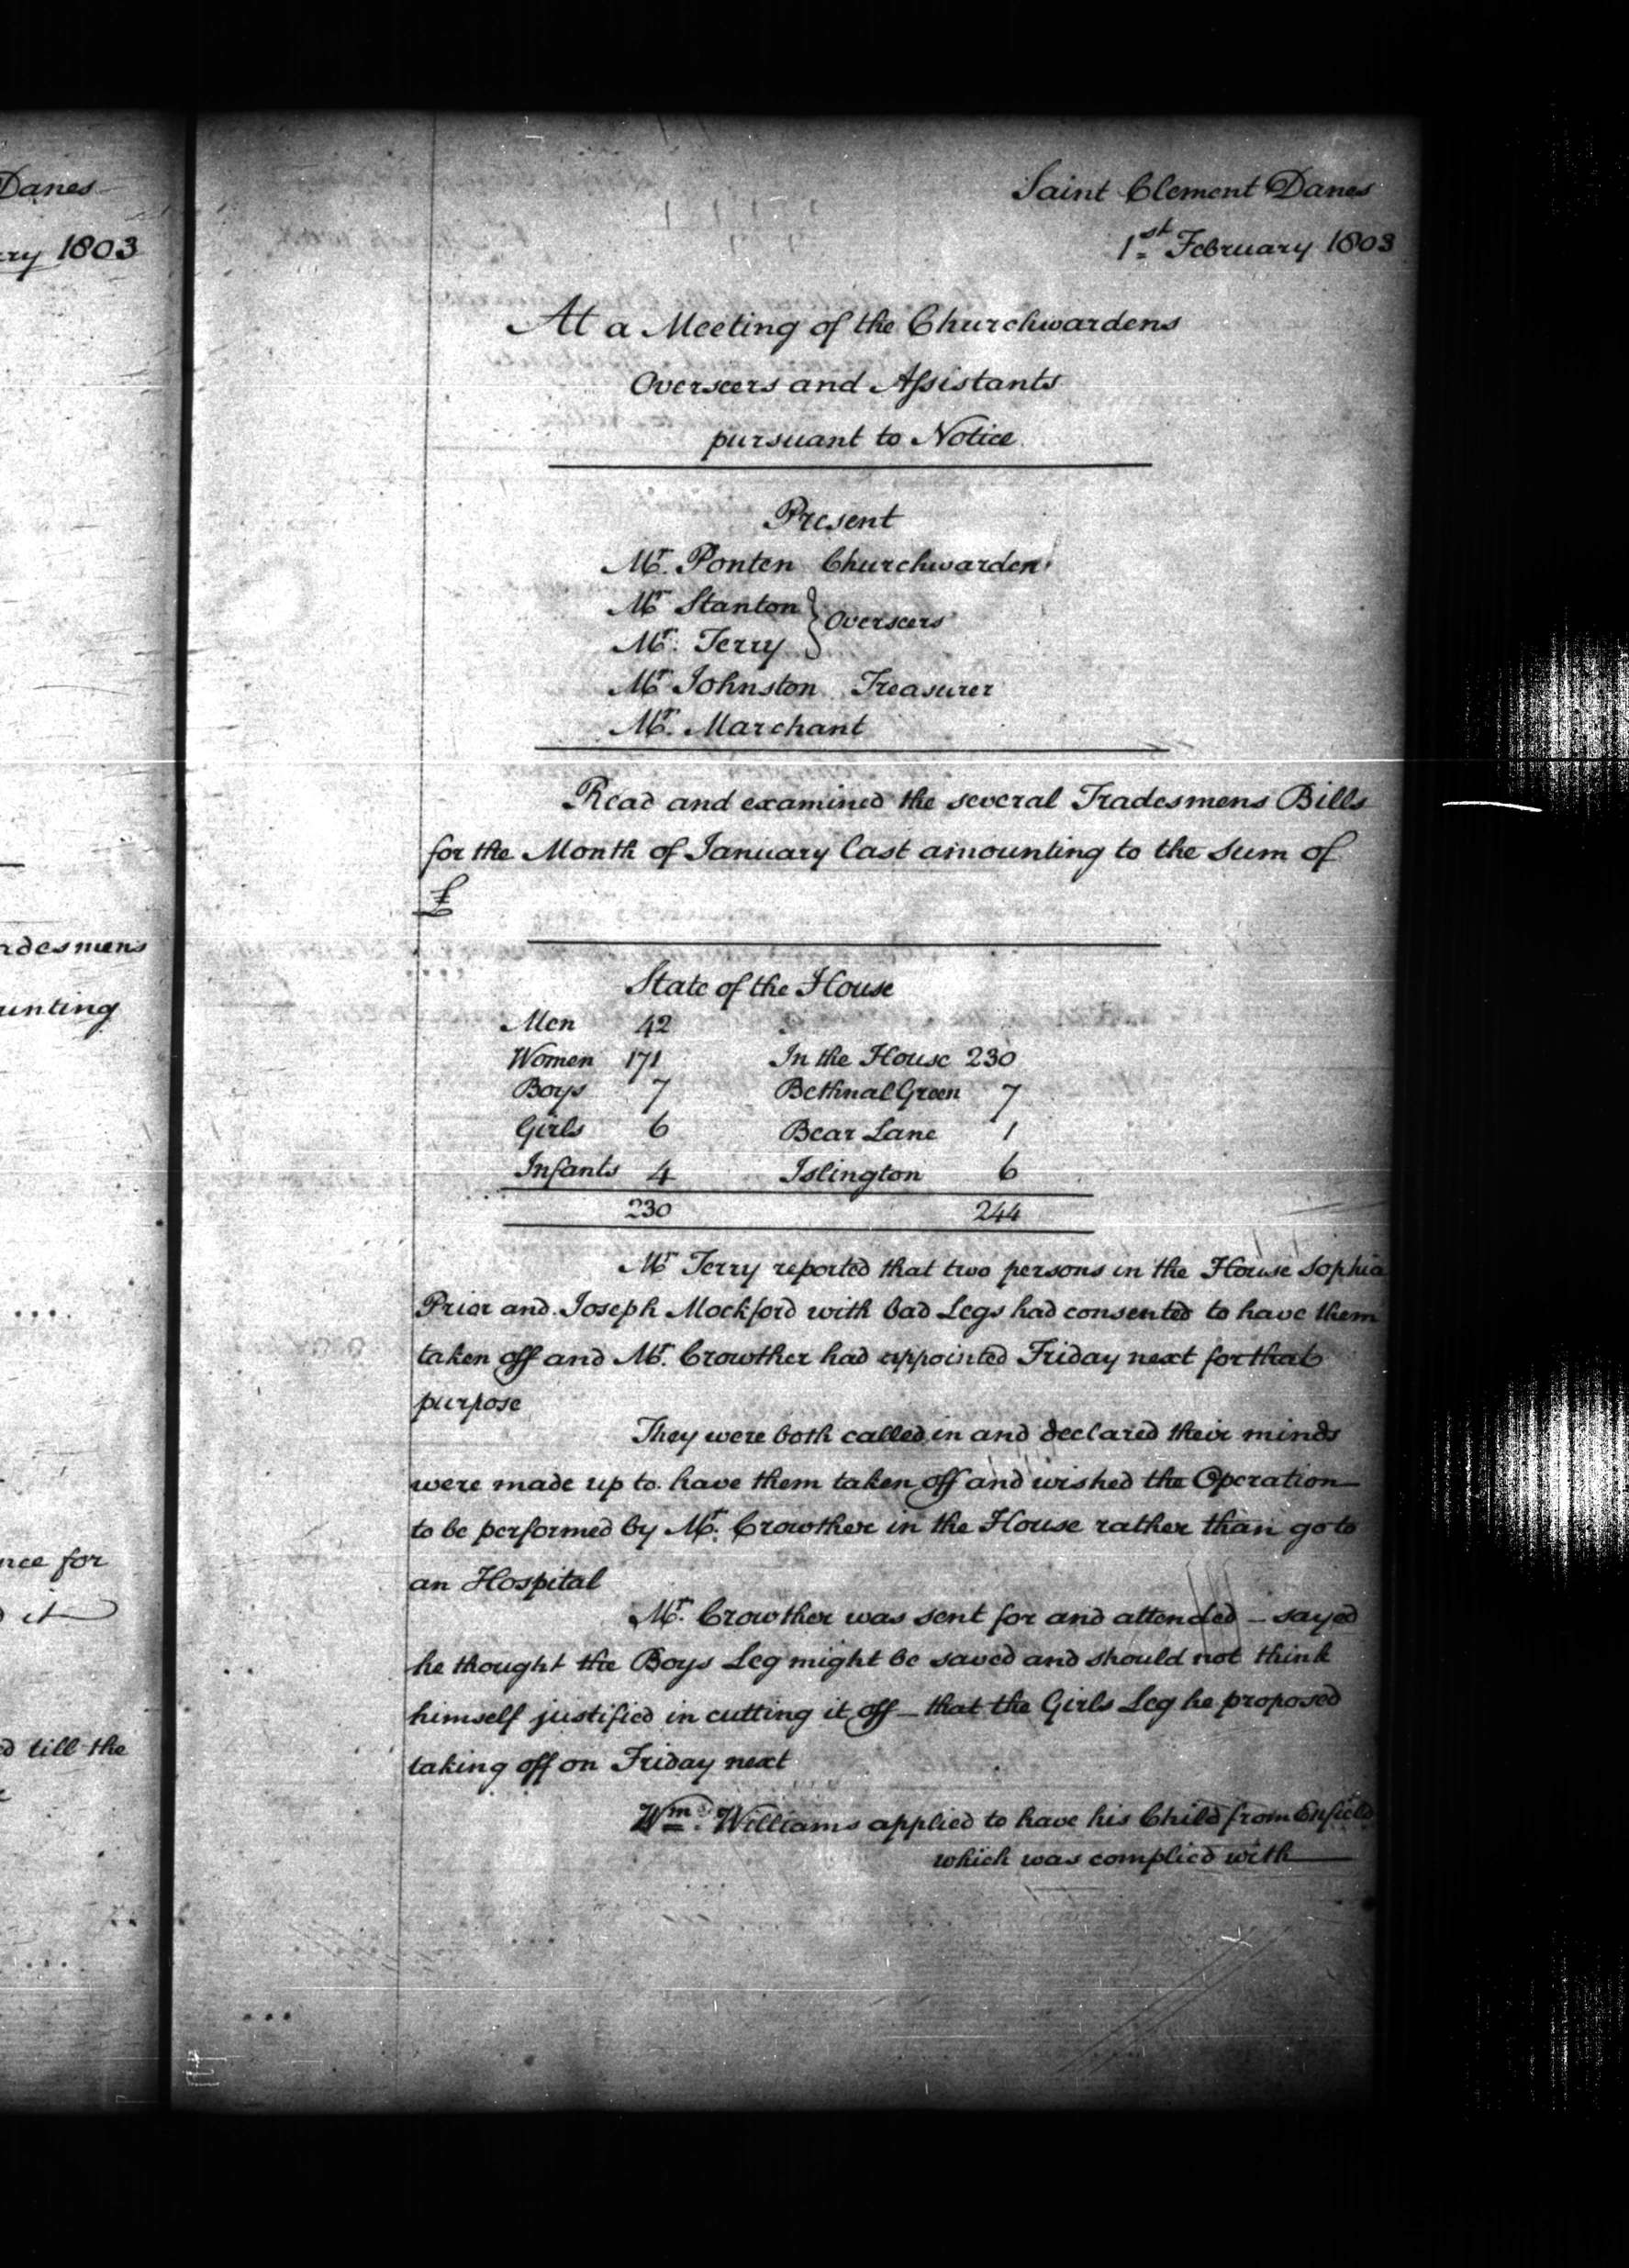 Danes
ry 1803
adesmens
unting
nce for
it
d till the
Saint Clement Danes
1st February 1803
At a Meeting of the Churchwardens
Overseers and Assistants
pursuant to Notice
Present
Mr. Ponten Churchwarden
Mr Stanton } Overseers
Mr. Terry
Mr Johnston Treasurer
Mr. Marchant
Read and examined the several Tradesmens Bills
for the Month of January last amounting to the Sum of
£
State of the House
Men 42
Women 171 In the House 230
Boys 7 Bethnal Green 7
Girls 6 Bear Lane 1
Infants 4 Islington 6
230 244
Mr Terry reported that two persons in the House Sophia
Prior and Joseph Mockford with bad Legs had consented to have them
taken off and Mr. Crowther had appointed Friday next for that
purpose
They were both called in and declared their minds
were made up to have them taken off and wished the Operation
to be performed by Mr. Crowther in the House rather than go to
an Hospital
Mr. Crowther was sent for and attended – sayed
he thought the Boys Leg might be saved and should not think
himself justified in cutting it off – that the Girls Leg he proposed
taking off on Friday next
Wm. Williams applied to have his Child from Enfield
which was complied with